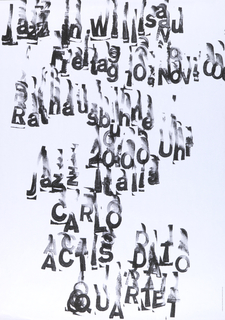 Jazz in Willisau
Freitag 10. Nov. 00
Rathausbühne
20.00 Uhr
Jazz Italia
CARLO
ACTIS DATO
QUARTET